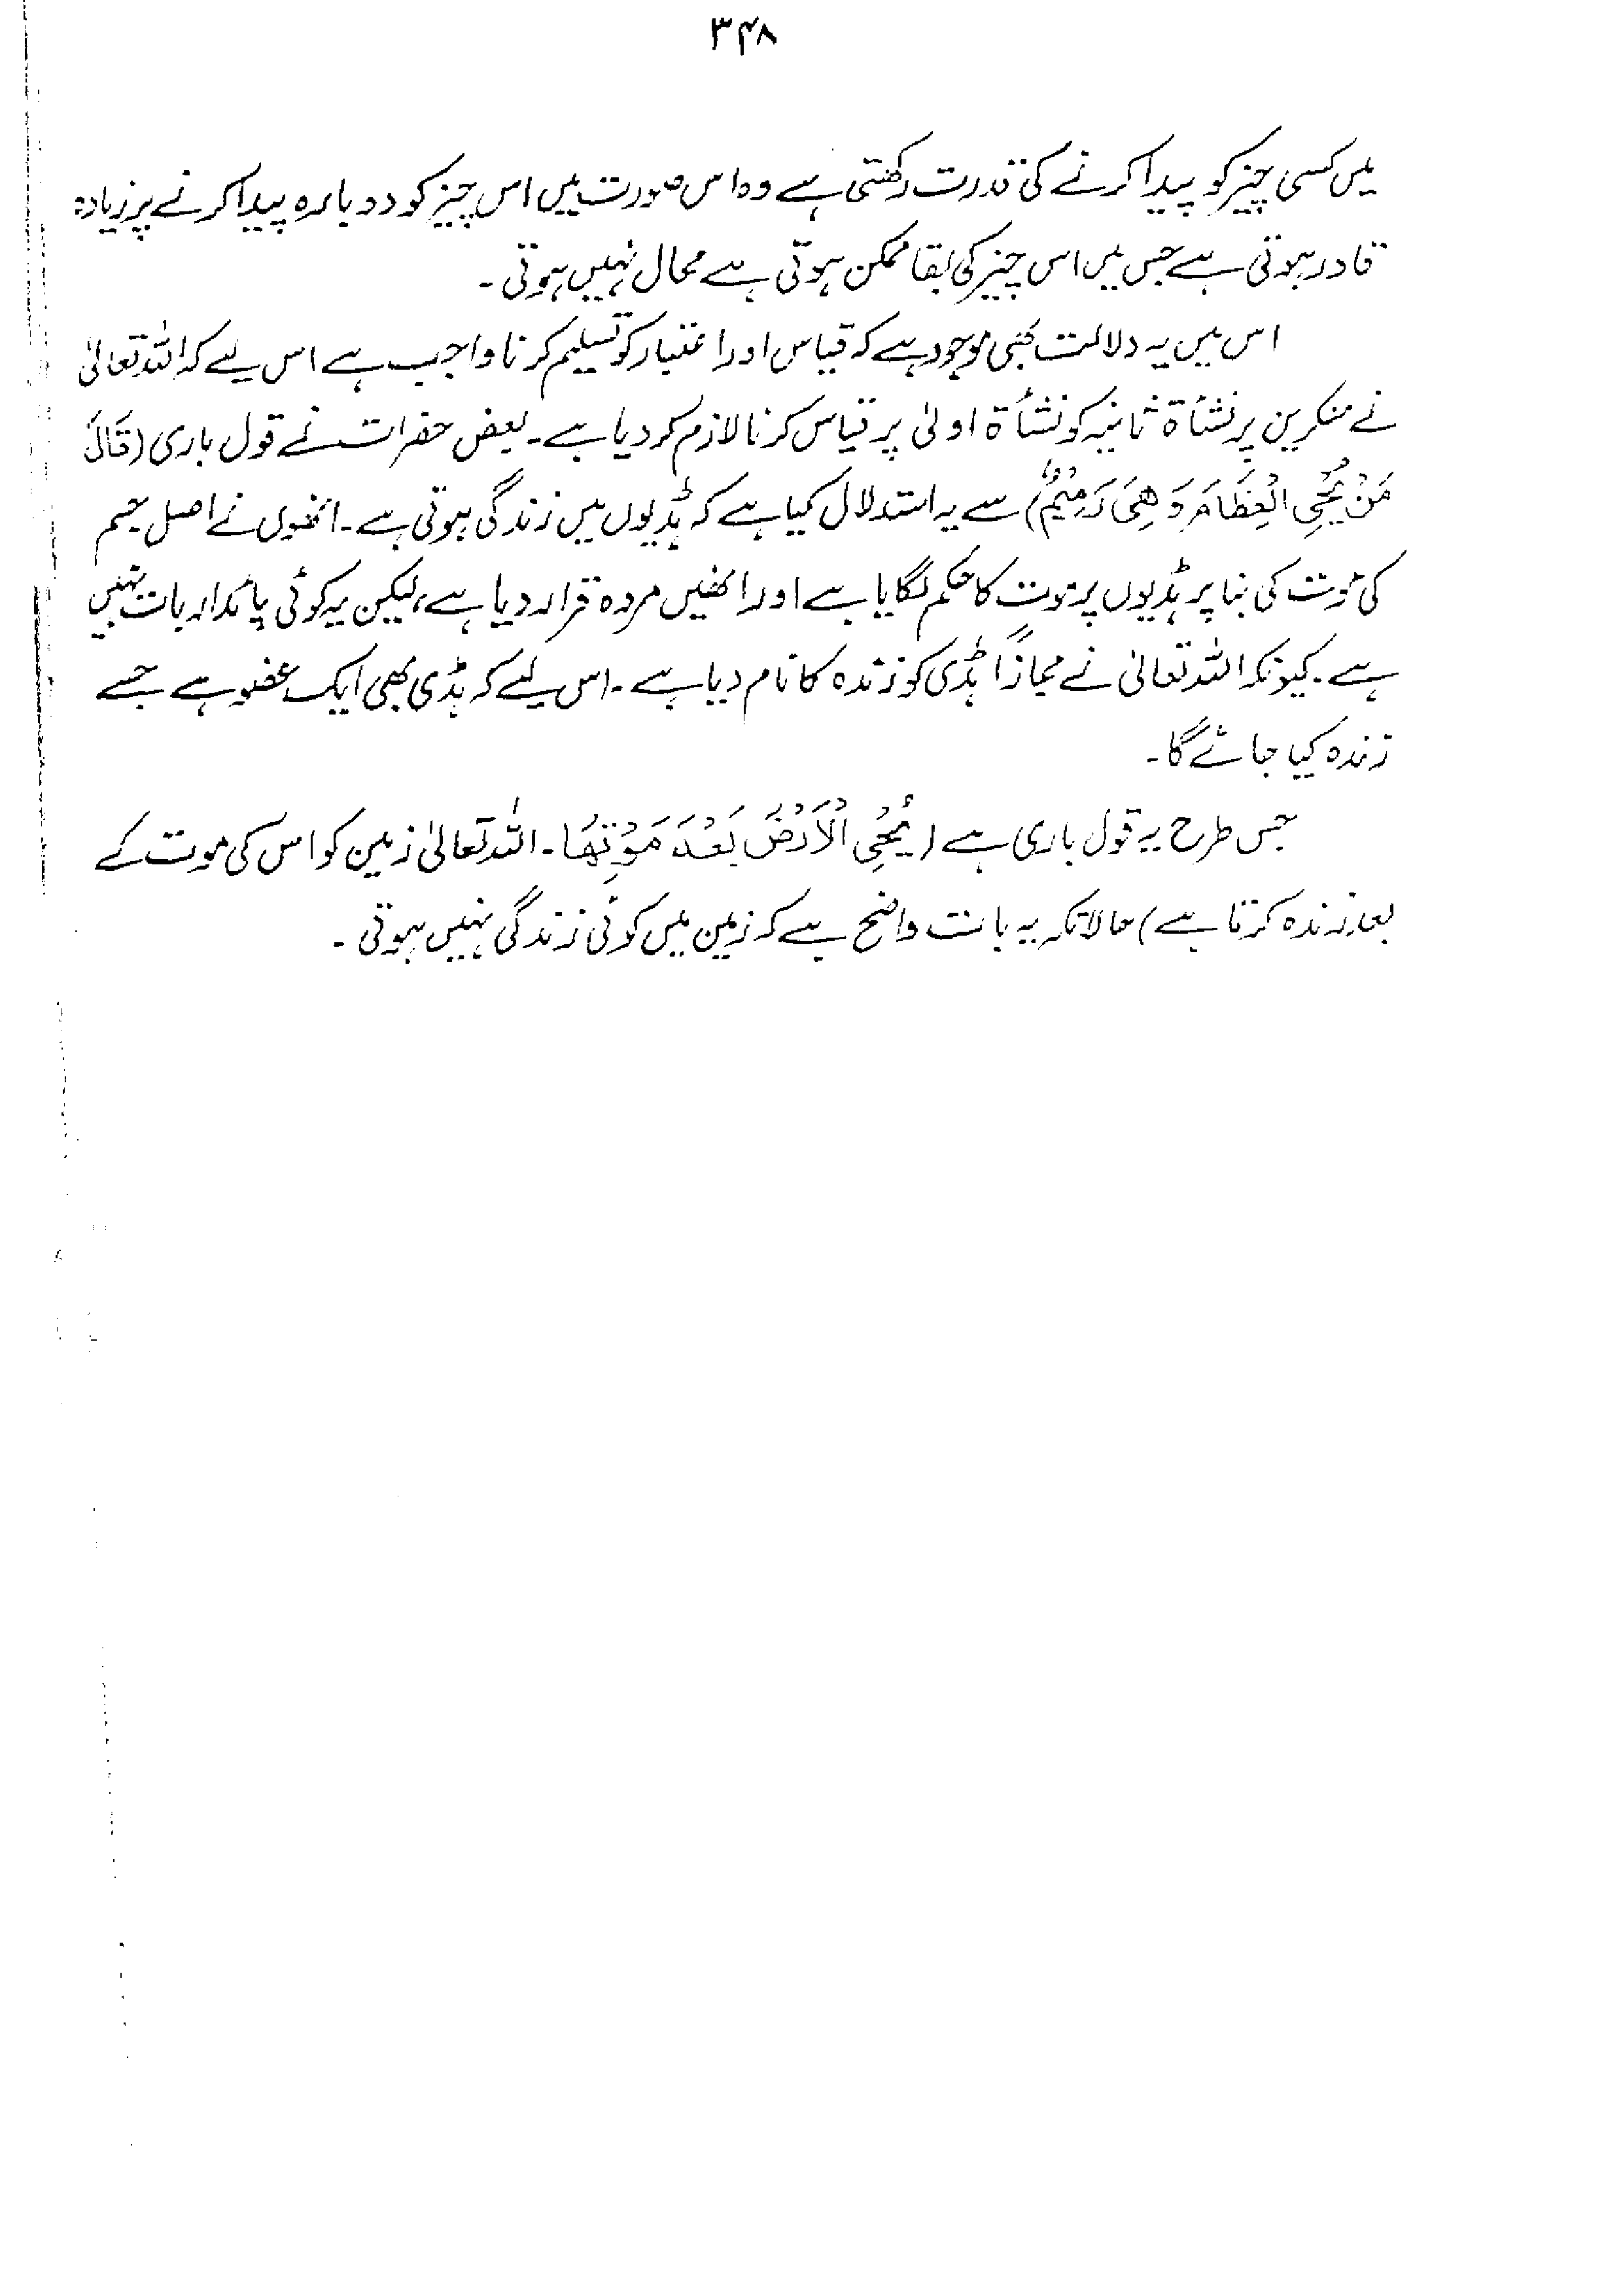 ۳۴۸
میں کسی چیز کو پیدا کرنے کی قدرت رکھتی ہے وہ اس صورت میں اس چیز کو دوبارہ پیدا کرنے پر زیادہ
قادر ہوتی ہے جس میں اس چیز کی بقا ممکن ہوتی ہے محال نہیں ہوتی۔
اس میں یہ دلالت بھی موجود ہے کہ قیاس اور اعتبار کو تسلیم کرنا واجب ہے اس لیے کہ اللہ تعالیٰ
نے منکرین پر نشأۃ ثانیہ کو نشأۃ اولیٰ پر قیاس کرنا لازم کر دیا ہے۔ بعض حضرات نے قول باری (قَالَ
مَنْ يُّحْيِ الْعِظَامَ وَهِيَ رَمِيْمٌ) سے یہ استدلال کیا ہے کہ ہڈیوں میں زندگی ہوتی ہے۔ انھوں نے اصل جسم
کی موت کی بنا پر ہڈیوں پر موت کا حکم لگایا ہے اور انھیں مردہ قرار دیا ہے، لیکن یہ کوئی پائدار بات نہیں
ہے۔ کیونکہ اللہ تعالیٰ نے مجازاً ہڈی کو زندہ کا نام دیا ہے۔ اس لیے کہ ہڈی بھی ایک عضو ہے جسے
زندہ کیا جائے گا۔
جس طرح یہ قول باری ہے (يُحْيِ الْاَرْضَ بَعْدَ مَوْتِهَا۔ اللہ تعالیٰ زمین کو اس کی موت کے
بعد زندہ کرتا ہے) حالانکہ یہ بات واضح ہے کہ زمین میں کوئی زندگی نہیں ہوتی۔